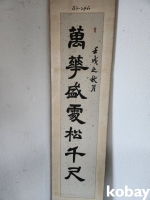 萬華盛處松千尺
壬戌之秋月
kobay